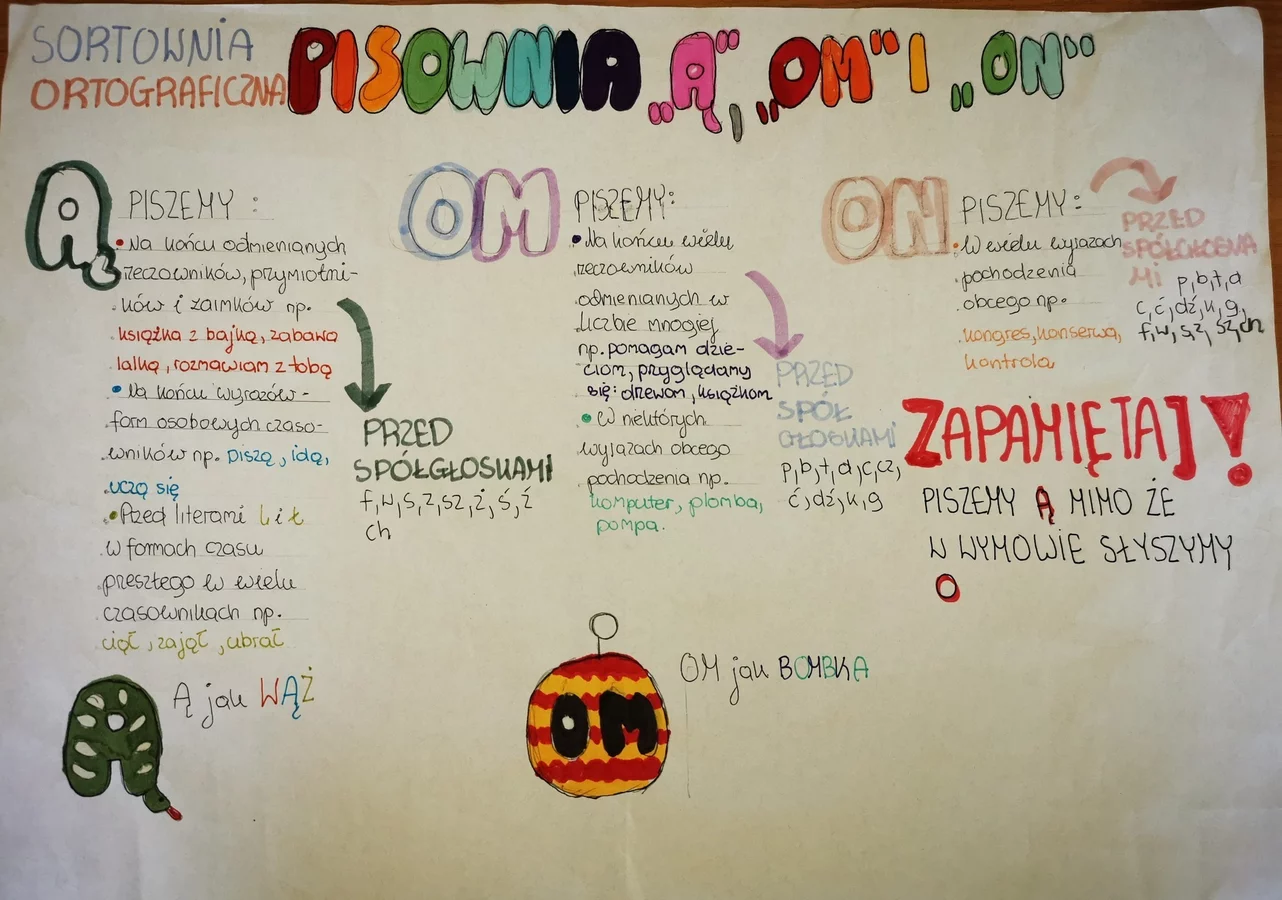 SORTOWNIA
ORTOGRAFICZNA
PISOWNIA „Ą”, „OM” I „ON”
Ą PISZEMY :
• Na końcu odmienianych
rzeczowników, przymiotni-
ków i zaimków np.
książka z bajką, zabawa
lalką, rozmawiam z tobą
• Na końcu wyrazów -
form osobowych czaso-
wników np. piszą, idą,
uczą się
• Przed literami l i ł
w formach czasu
preszłego w wielu
czasownikach np.
ciął, zajął, ubrał
PRZED
SPÓŁGŁOSKAMI
f, w, s, z, sz, ż, ś, ź
ch
Ą jak WĄŻ
OM PISZEMY:
• Na końcu wielu
rzeczowników
odmienianych w
liczbie mnogiej
np. pomagam dzie-
ciom, przyglądamy
się: drzewom, książkom
• W niektórych
wyrazach obcego
pochodzenia np.
komputer, plomba,
pompa.
PRZED
SPÓŁ
GŁOSKAMI
p, b, t, d, c, cz,
ć, dź, k, g
OM
OM jak BOMBKA
ON PISZEMY:
• W wielu wyrazach
pochodzenia
obcego np.
kongres, konserwa,
kontrola
PRZED
SPÓŁGŁOSKA
MI
p, b, t, d
c, ć, dź, k, g,
f, w, s, z, sz, ch
ZAPAMIĘTAJ!
PISZEMY Ą MIMO ŻE
W WYMOWIE SŁYSZYMY
O